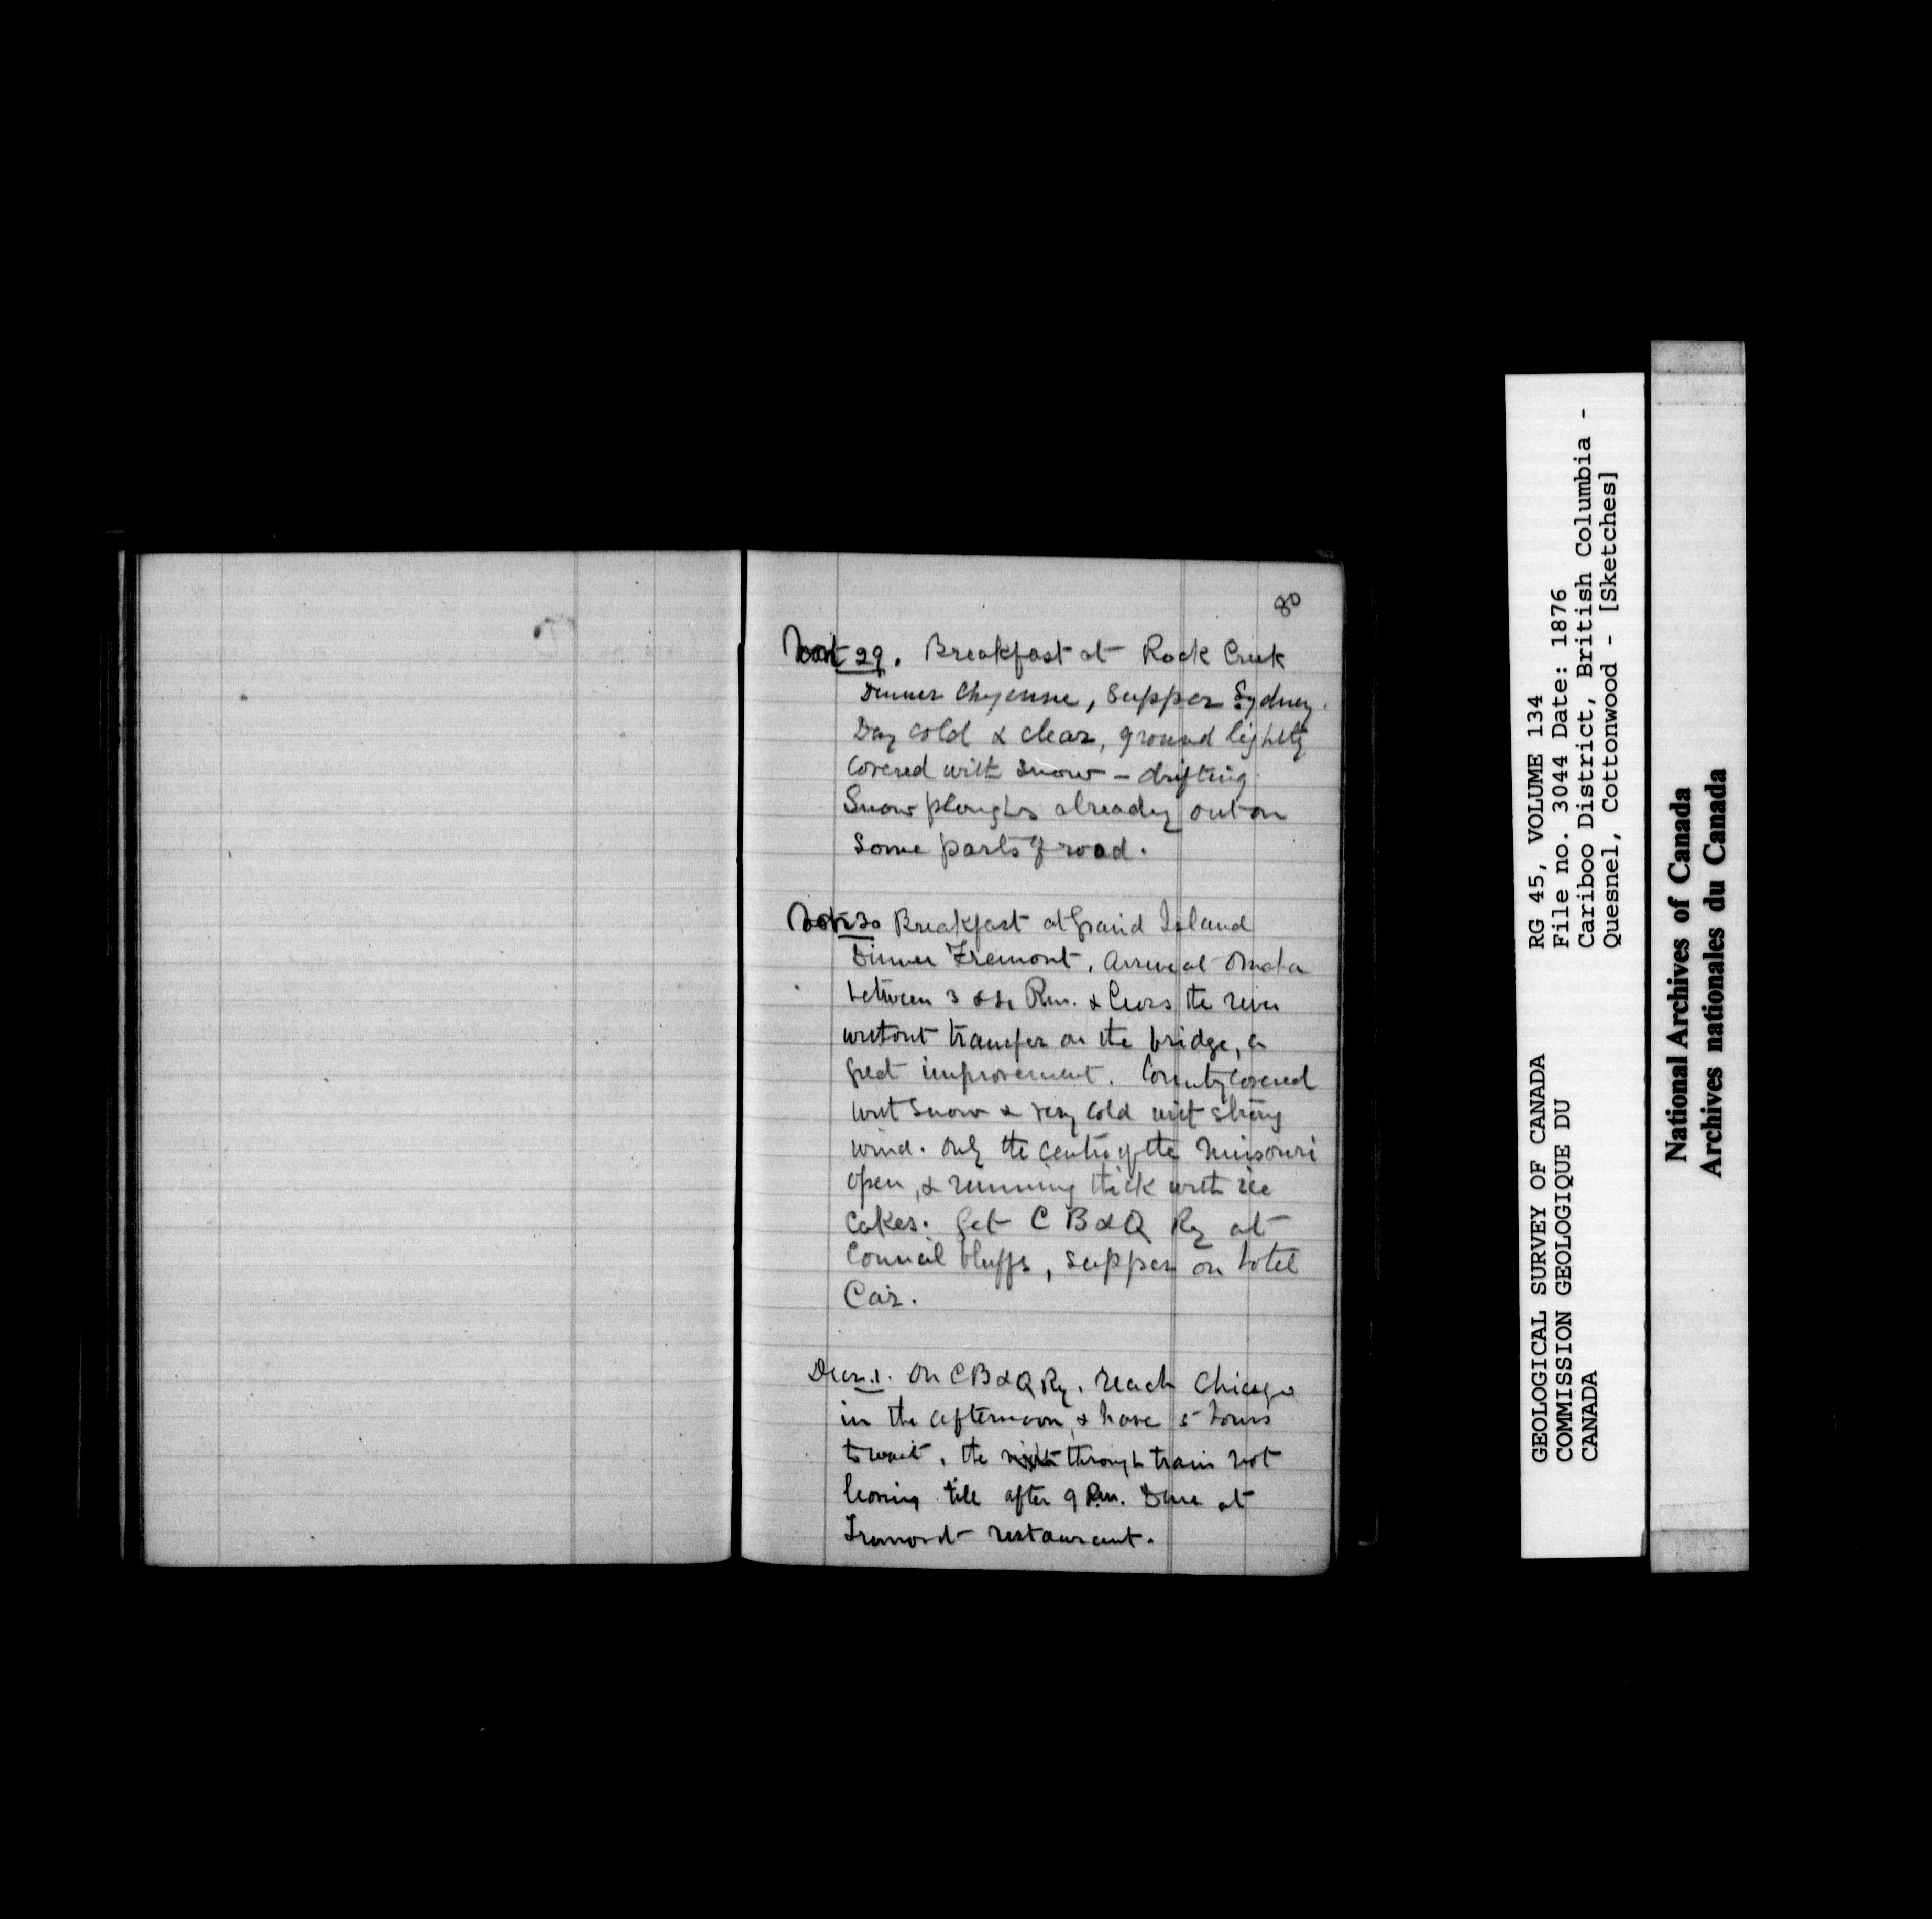 80
29. Breakfast at Rock Creek
Dinner Cheyenne, Supper Sydney.
Day cold & clear, ground lightly
covered with snow – drifting.
Snow ploughs already out on
some parts of road.
30 Breakfast at Grand Island
Dinner Fremont. Arrive at Omaha
between 3 & 4 P.m. & Cross the river
without transfer on the bridge, a
great improvement. Country covered
with snow & very cold with strong
wind. Only the centre of the Missouri
open, & running thick with ice
cakes. Get C B & Q Ry at
Council bluffs, supper on hotel
Car.
Decr. 1. On C B & Q Ry. reach Chicago
in the afternoon, & have 5 hours
to wait, the through train not
leaving till after 9 P.m. Dine at
restaurant.
GEOLOGICAL SURVEY OF CANADA
COMMISSION GEOLOGIQUE DU
CANADA
RG 45, VOLUME 134
File no. 3044 Date: 1876
Cariboo District, British Columbia -
Quesnel, Cottonwood - [Sketches]
National Archives of Canada
Archives nationales du Canada